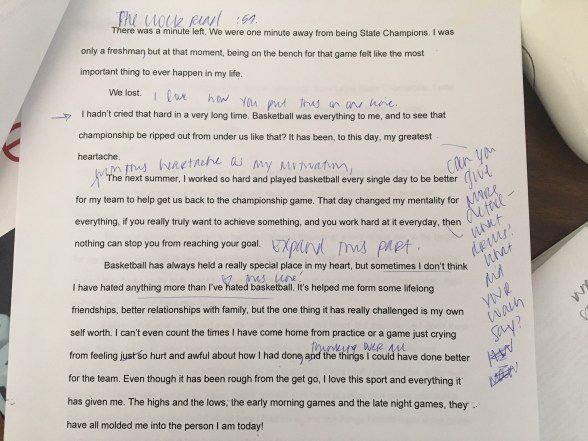 The clock read :59.
There was a minute left. We were one minute away from being State Champions. I was
only a freshman, but at that moment, being on the bench for that game felt like the most
important thing to ever happen in my life.
We lost. I love how you put this on one line.
I hadn't cried that hard in a very long time. Basketball was everything to me, and to see that
championship be ripped out from under us like that? It has been, to this day, my greatest
heartache.
heartache as my motivation,
The next summer, I worked so hard and played basketball every single day to be better
for my team to help get us back to the championship game. That day changed my mentality for
everything, if you really truly want to achieve something, and you work hard at it everyday, then
nothing can stop you from reaching your goal. Expand this part.
can you
give
more
detail—
what
drills?
what
did
your
coach
say?
Basketball has always held a really special place in my heart, but sometimes I don't think
this line!
I have hated anything more than I've hated basketball. It's helped me form some lifelong
friendships, better relationships with family, but the one thing it has really challenged is my own
self worth. I can't even count the times I have come home from practice or a game just crying
thinking over all
from feeling just so hurt and awful about how I had done, and the things I could have done better
for the team. Even though it has been rough from the get go, I love this sport and everything it
has given me. The highs and the lows, the early morning games and the late night games, they
have all molded me into the person I am today!